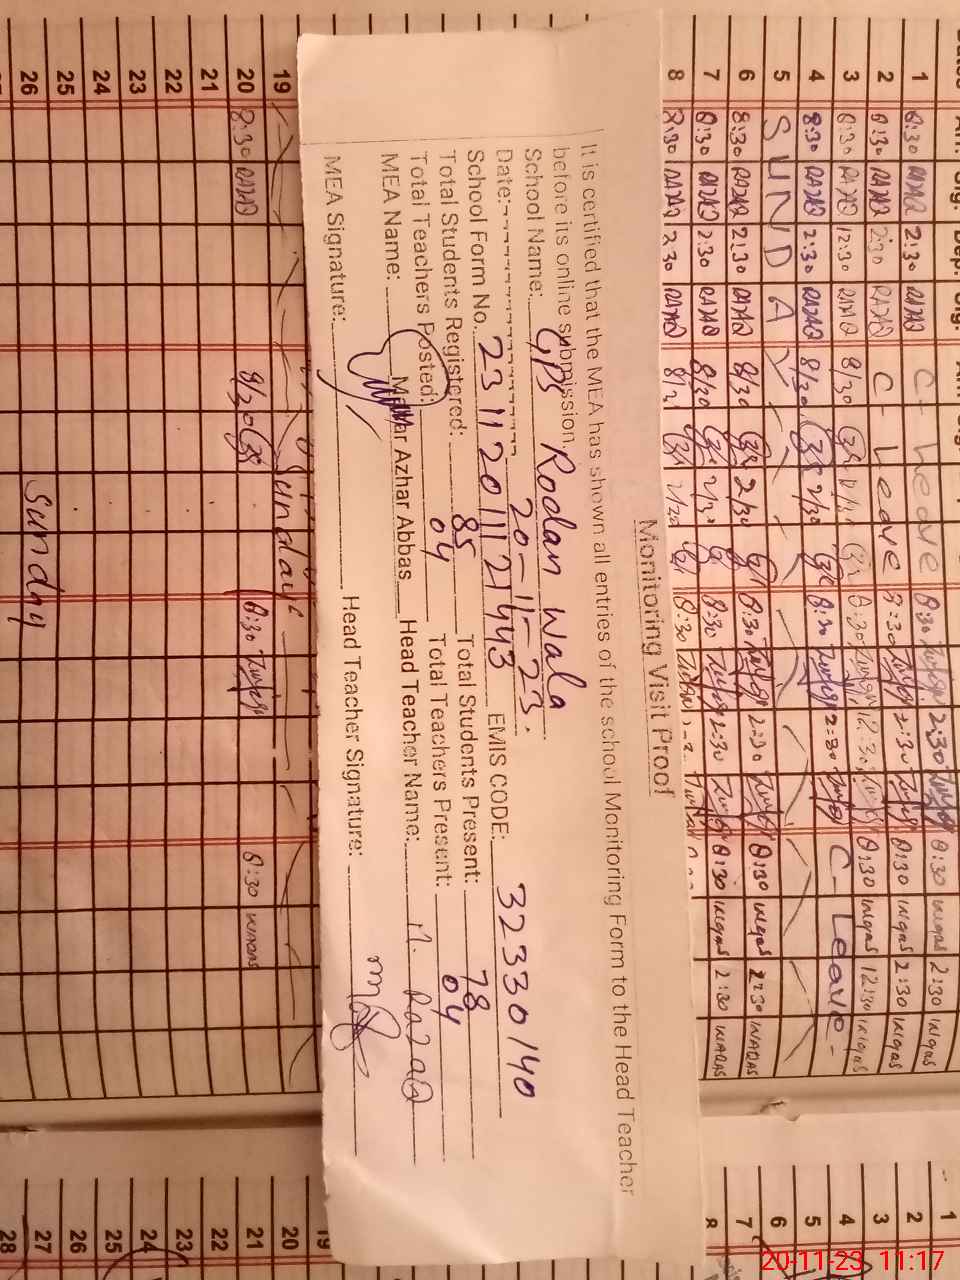 Monitoring Visit Proof
It is certified that the MEA has shown all entries of the school Monitoring Form to the Head Teacher
before its online submission.
School Name: GPS Rodan Wala
Date: 20-11-23.
School Form No. 23112011121443 EMIS CODE: 32330140
Total Students Registered: 85 Total Students Present: 78
Total Teachers Posted: 04 Total Teachers Present: 04
MEA Name: Azhar Abbas Head Teacher Name: M. Razaq
MEA Signature: Head Teacher Signature:
1 8:30 RAZAQ 2:30 RAZAQ C- Leave 8:30 2:30 8:30 WAQAS 2:30 WAQAS
2 8:30 RAZAQ 2:30 RAZAQ C- Leave 8:30 2:30 8:30 WAQAS 2:30 WAQAS
3 8:30 RAZAQ 12:30 RAZAQ 8/30 8:30 12:30 8:30 WAQAS 12:30 WAQAS
4 8:30 RAZAQ 2:30 RAZAQ 8/30 2/30 8:30 2:30 C- Leave -
5 SUNDAY
6 8:30 RAZAQ 2:30 RAZAQ 8/30 2/30 8:30 2:30 8:30 WAQAS 2:30 WAQAS
7 8:30 RAZAQ 2:30 RAZAQ 8/30 2/30 8:30 2:30 8:30 WAQAS 2:30 WAQAS
8 8:30 RAZAQ 2:30 RAZAQ 8:30
19 Sunday
20 8:30 RAZAQ 8/30 8:30 8:30 WAQAS
21
22
23
24
25
26 Sunday
1
2
3
4
5
6
7
8
19
20
21
22
23
24
25
26
27
28
20-11-23 11:17